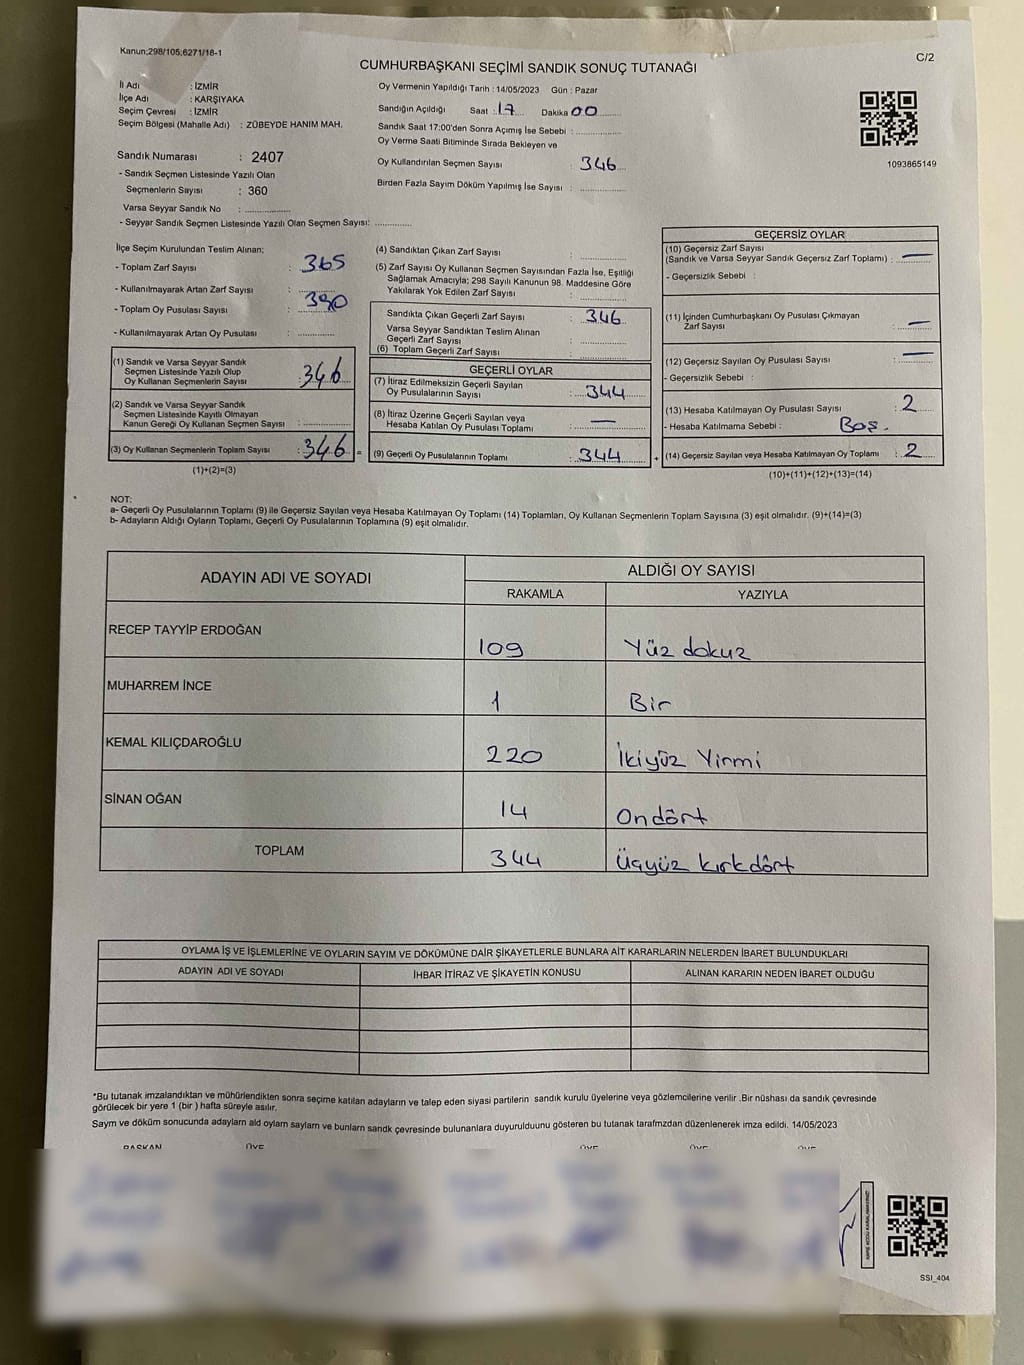 Kanun;298/105;6271/18-1
C/2
CUMHURBAŞKANI SEÇİMİ SANDIK SONUÇ TUTANAĞI
İl Adı : İZMİR
İlçe Adı : KARŞIYAKA
Seçim Çevresi : İZMİR
Seçim Bölgesi (Mahalle Adı) : ZÜBEYDE HANIM MAH.
Sandık Numarası : 2407
- Sandık Seçmen Listesinde Yazılı Olan
Seçmenlerin Sayısı : 360
Varsa Seyyar Sandık No : ..............
- Seyyar Sandık Seçmen Listesinde Yazılı Olan Seçmen Sayısı: ............
Oy Vermenin Yapıldığı Tarih : 14/05/2023 Gün : Pazar
Sandığın Açıldığı Saat : 17 Dakika 00
Sandık Saat 17:00'den Sonra Açımış İse Sebebi : ..............
Oy Verme Saati Bitiminde Sırada Bekleyen ve
Oy Kullandırılan Seçmen Sayısı : 346
Birden Fazla Sayım Döküm Yapılmış İse Sayısı : ..............
1093865149
İlçe Seçim Kurulundan Teslim Alınan;
- Toplam Zarf Sayısı : 365
- Kullanılmayarak Artan Zarf Sayısı : ............
- Toplam Oy Pusulası Sayısı : 390
- Kullanılmayarak Artan Oy Pusulası : ............
(1) Sandık ve Varsa Seyyar Sandık
Seçmen Listesinde Yazılı Olup
Oy Kullanan Seçmenlerin Sayısı : 346
(2) Sandık ve Varsa Seyyar Sandık
Seçmen Listesinde Kayıtlı Olmayan
Kanun Gereği Oy Kullanan Seçmen Sayısı : ............
(3) Oy Kullanan Seçmenlerin Toplam Sayısı : 346 =
(1)+(2)=(3)
(4) Sandıktan Çıkan Zarf Sayısı : ............
(5) Zarf Sayısı Oy Kullanan Seçmen Sayısından Fazla İse, Eşitliği
Sağlamak Amacıyla; 298 Sayılı Kanunun 98. Maddesine Göre
Yakılarak Yok Edilen Zarf Sayısı : ............
Sandıkta Çıkan Geçerli Zarf Sayısı : 346
Varsa Seyyar Sandıktan Teslim Alınan
Geçerli Zarf Sayısı : ............
(6) Toplam Geçerli Zarf Sayısı : ............
GEÇERLİ OYLAR
(7) İtiraz Edilmeksizin Geçerli Sayılan
Oy Pusulalarının Sayısı : 344
(8) İtiraz Üzerine Geçerli Sayılan veya
Hesaba Katılan Oy Pusulası Toplamı : —
(9) Geçerli Oy Pusulalarının Toplamı : 344 +
GEÇERSİZ OYLAR
(10) Geçersiz Zarf Sayısı
(Sandık ve Varsa Seyyar Sandık Geçersiz Zarf Toplamı) : —
- Geçersizlik Sebebi :
(11) İçinden Cumhurbaşkanı Oy Pusulası Çıkmayan
Zarf Sayısı : —
(12) Geçersiz Sayılan Oy Pusulası Sayısı : —
- Geçersizlik Sebebi :
(13) Hesaba Katılmayan Oy Pusulası Sayısı : 2
- Hesaba Katılmama Sebebi : Boş.
(14) Geçersiz Sayılan veya Hesaba Katılmayan Oy Toplamı : 2
(10)+(11)+(12)+(13)=(14)
NOT:
a- Geçerli Oy Pusulalarının Toplamı (9) ile Geçersiz Sayılan veya Hesaba Katılmayan Oy Toplamı (14) Toplamları, Oy Kullanan Seçmenlerin Toplam Sayısına (3) eşit olmalıdır. (9)+(14)=(3)
b- Adayların Aldığı Oyların Toplamı, Geçerli Oy Pusulalarının Toplamına (9) eşit olmalıdır.
ADAYIN ADI VE SOYADI ALDIĞI OY SAYISI
RAKAMLA YAZIYLA
RECEP TAYYİP ERDOĞAN 109 Yüz dokuz
MUHARREM İNCE 1 Bir
KEMAL KILIÇDAROĞLU 220 İkiyüz Yirmi
SİNAN OĞAN 14 Ondört
TOPLAM 344 Üçyüz kırkdört
OYLAMA İŞ VE İŞLEMLERİNE VE OYLARIN SAYIM VE DÖKÜMÜNE DAİR ŞİKAYETLERLE BUNLARA AİT KARARLARIN NELERDEN İBARET BULUNDUKLARI
ADAYIN ADI VE SOYADI İHBAR İTİRAZ VE ŞİKAYETİN KONUSU ALINAN KARARIN NEDEN İBARET OLDUĞU
*Bu tutanak imzalandıktan ve mühürlendikten sonra seçime katılan adayların ve talep eden siyasi partilerin sandık kurulu üyelerine veya gözlemcilerine verilir .Bir nüshası da sandık çevresinde
görülecek bir yere 1 (bir ) hafta süreyle asılır.
Saym ve döküm sonucunda adaylarn ald oylam saylarn ve bunlarn sandk çevresinde bulunanlara duyurulduunu gösteren bu tutanak tarafmzdan düzenlenerek imza edildi. 14/05/2023
BAŞKAN ÜYE ÜYE ÜYE ÜYE
SSI_404